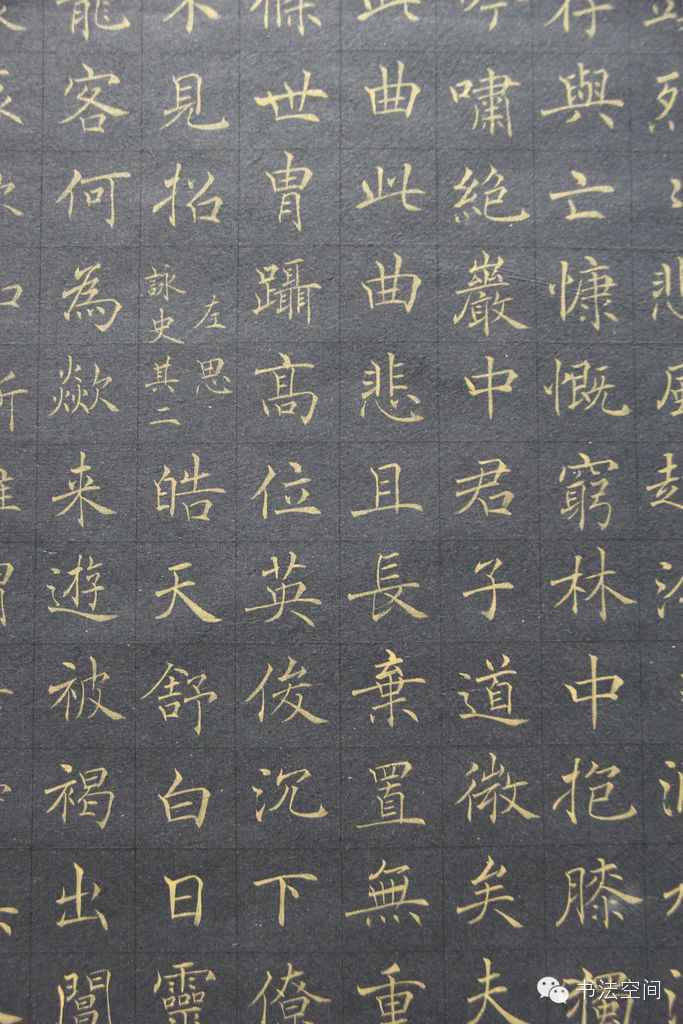 悲風起
存與亡慷慨窮林中抱膝獨
吟嘯絕巖中君子道微矣夫
此曲此曲悲且長棄置無重
條世冑躡髙位英俊沉下僚
不見招
左思
詠史其二
皓天舒白日靈
龍客何為歘来遊被褐出閶
书法空间